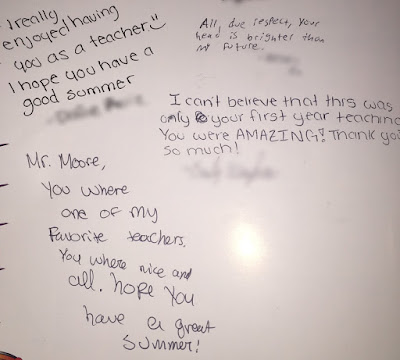 I really
enjoyed having
you as a teacher
I hope you have a
good summer
All due respect, your
head is brighter than
my future.
I can't believe that this was
only your first year teaching
You were AMAZING! Thank you
so much!
Mr. Moore,
You where
one of my
Favorite teachers.
You where nice and
all. hope you
have a great
summer!